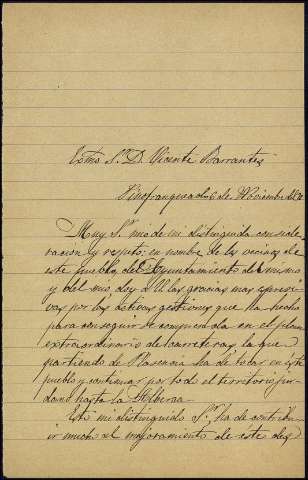 Exmo Sr. D. Vicente Barrantes
Pinofranqueado 6 de Noviembre de
Muy Sr. mio de mi distinguida conside
racion y respeto: en nombre de los vecinos de
este pueblo, del Ayuntamiento del mismo
y del mio doy a V. las gracias mas expresi
vas por las activas gestiones que ha hecho
para conseguir se comprenda en el plan
extraordinario de carreteras, la que
partiendo de Plasencia ha de tocar en este
pueblo y continuar por todo el territorio jur
dano hasta la Alberca
Esto mi distinguido Sr. ha de contribu
ir mucho al mejoramiento de este des